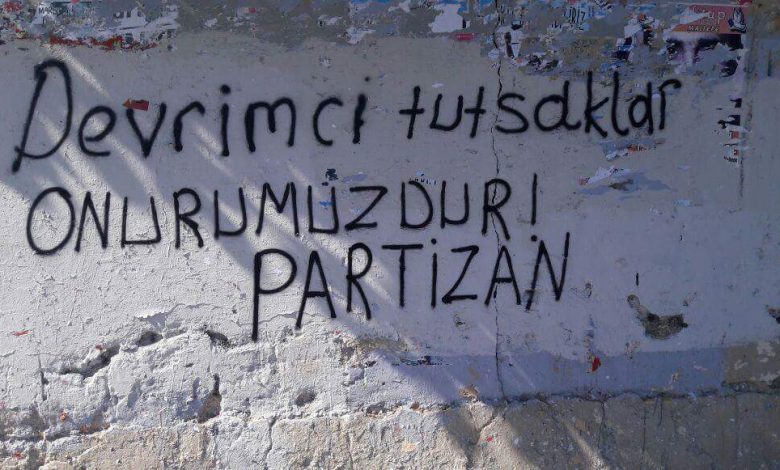 Devrimci tutsaklar
ONURUMUZDUR!
PARTİZAN